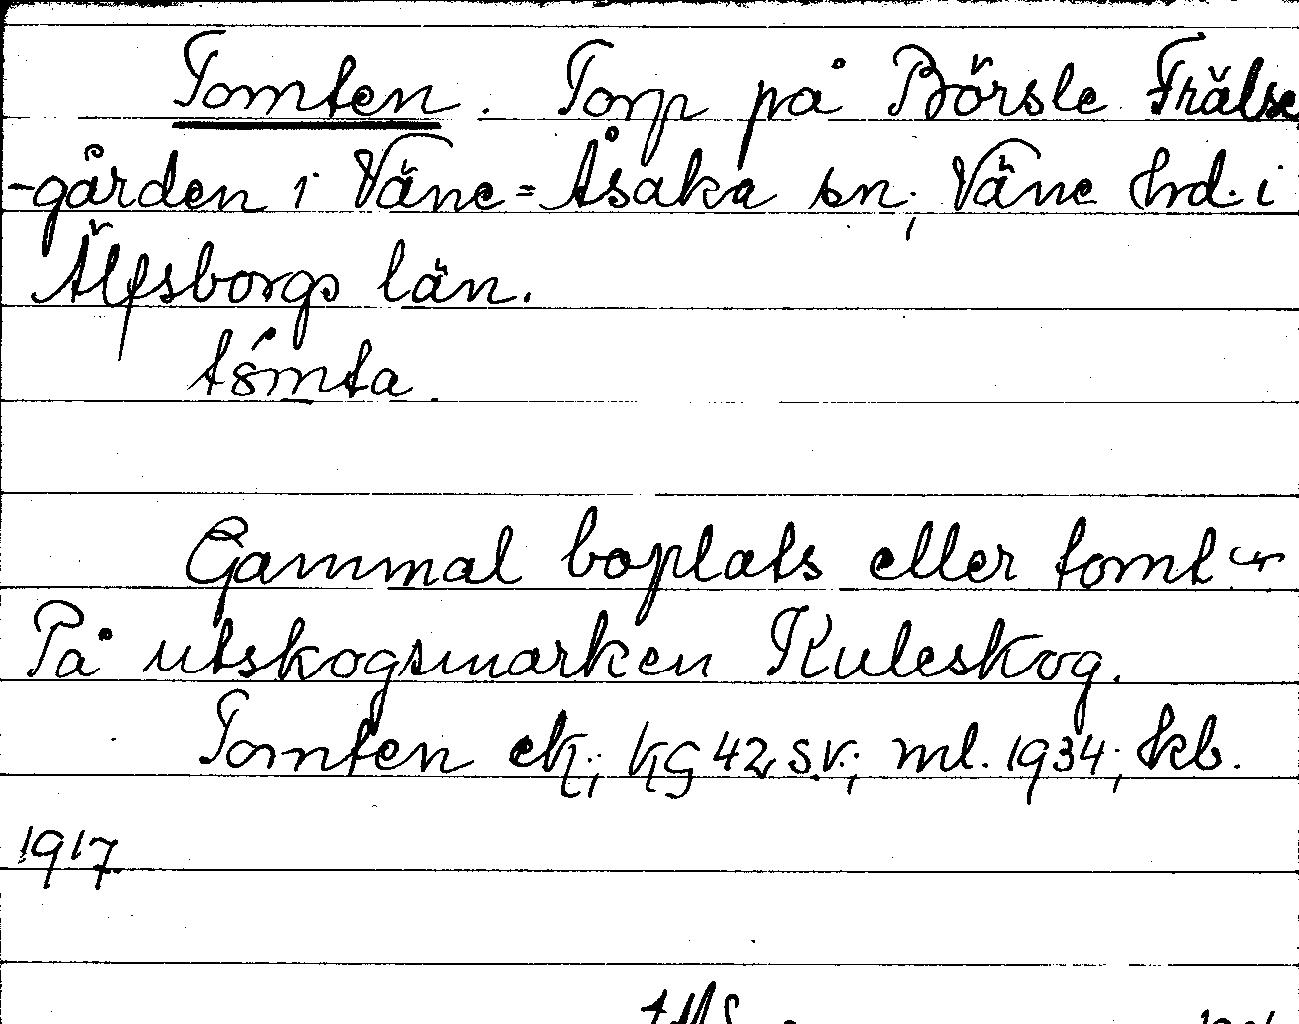 Tomten. Torp på Börsle Frälse
-gården i Väne=Åsaka sn; Väne hrd. i
Älfsborgs län.
Gammal boplats eller tomt
På utskogsmarken Kuleskog.
Tomten ek; kg 42 s.v.; ml. 1934; kb.
1917.